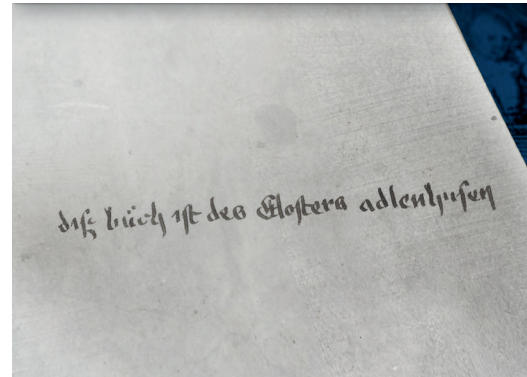 diſz büch ist des Closters adlenhusen